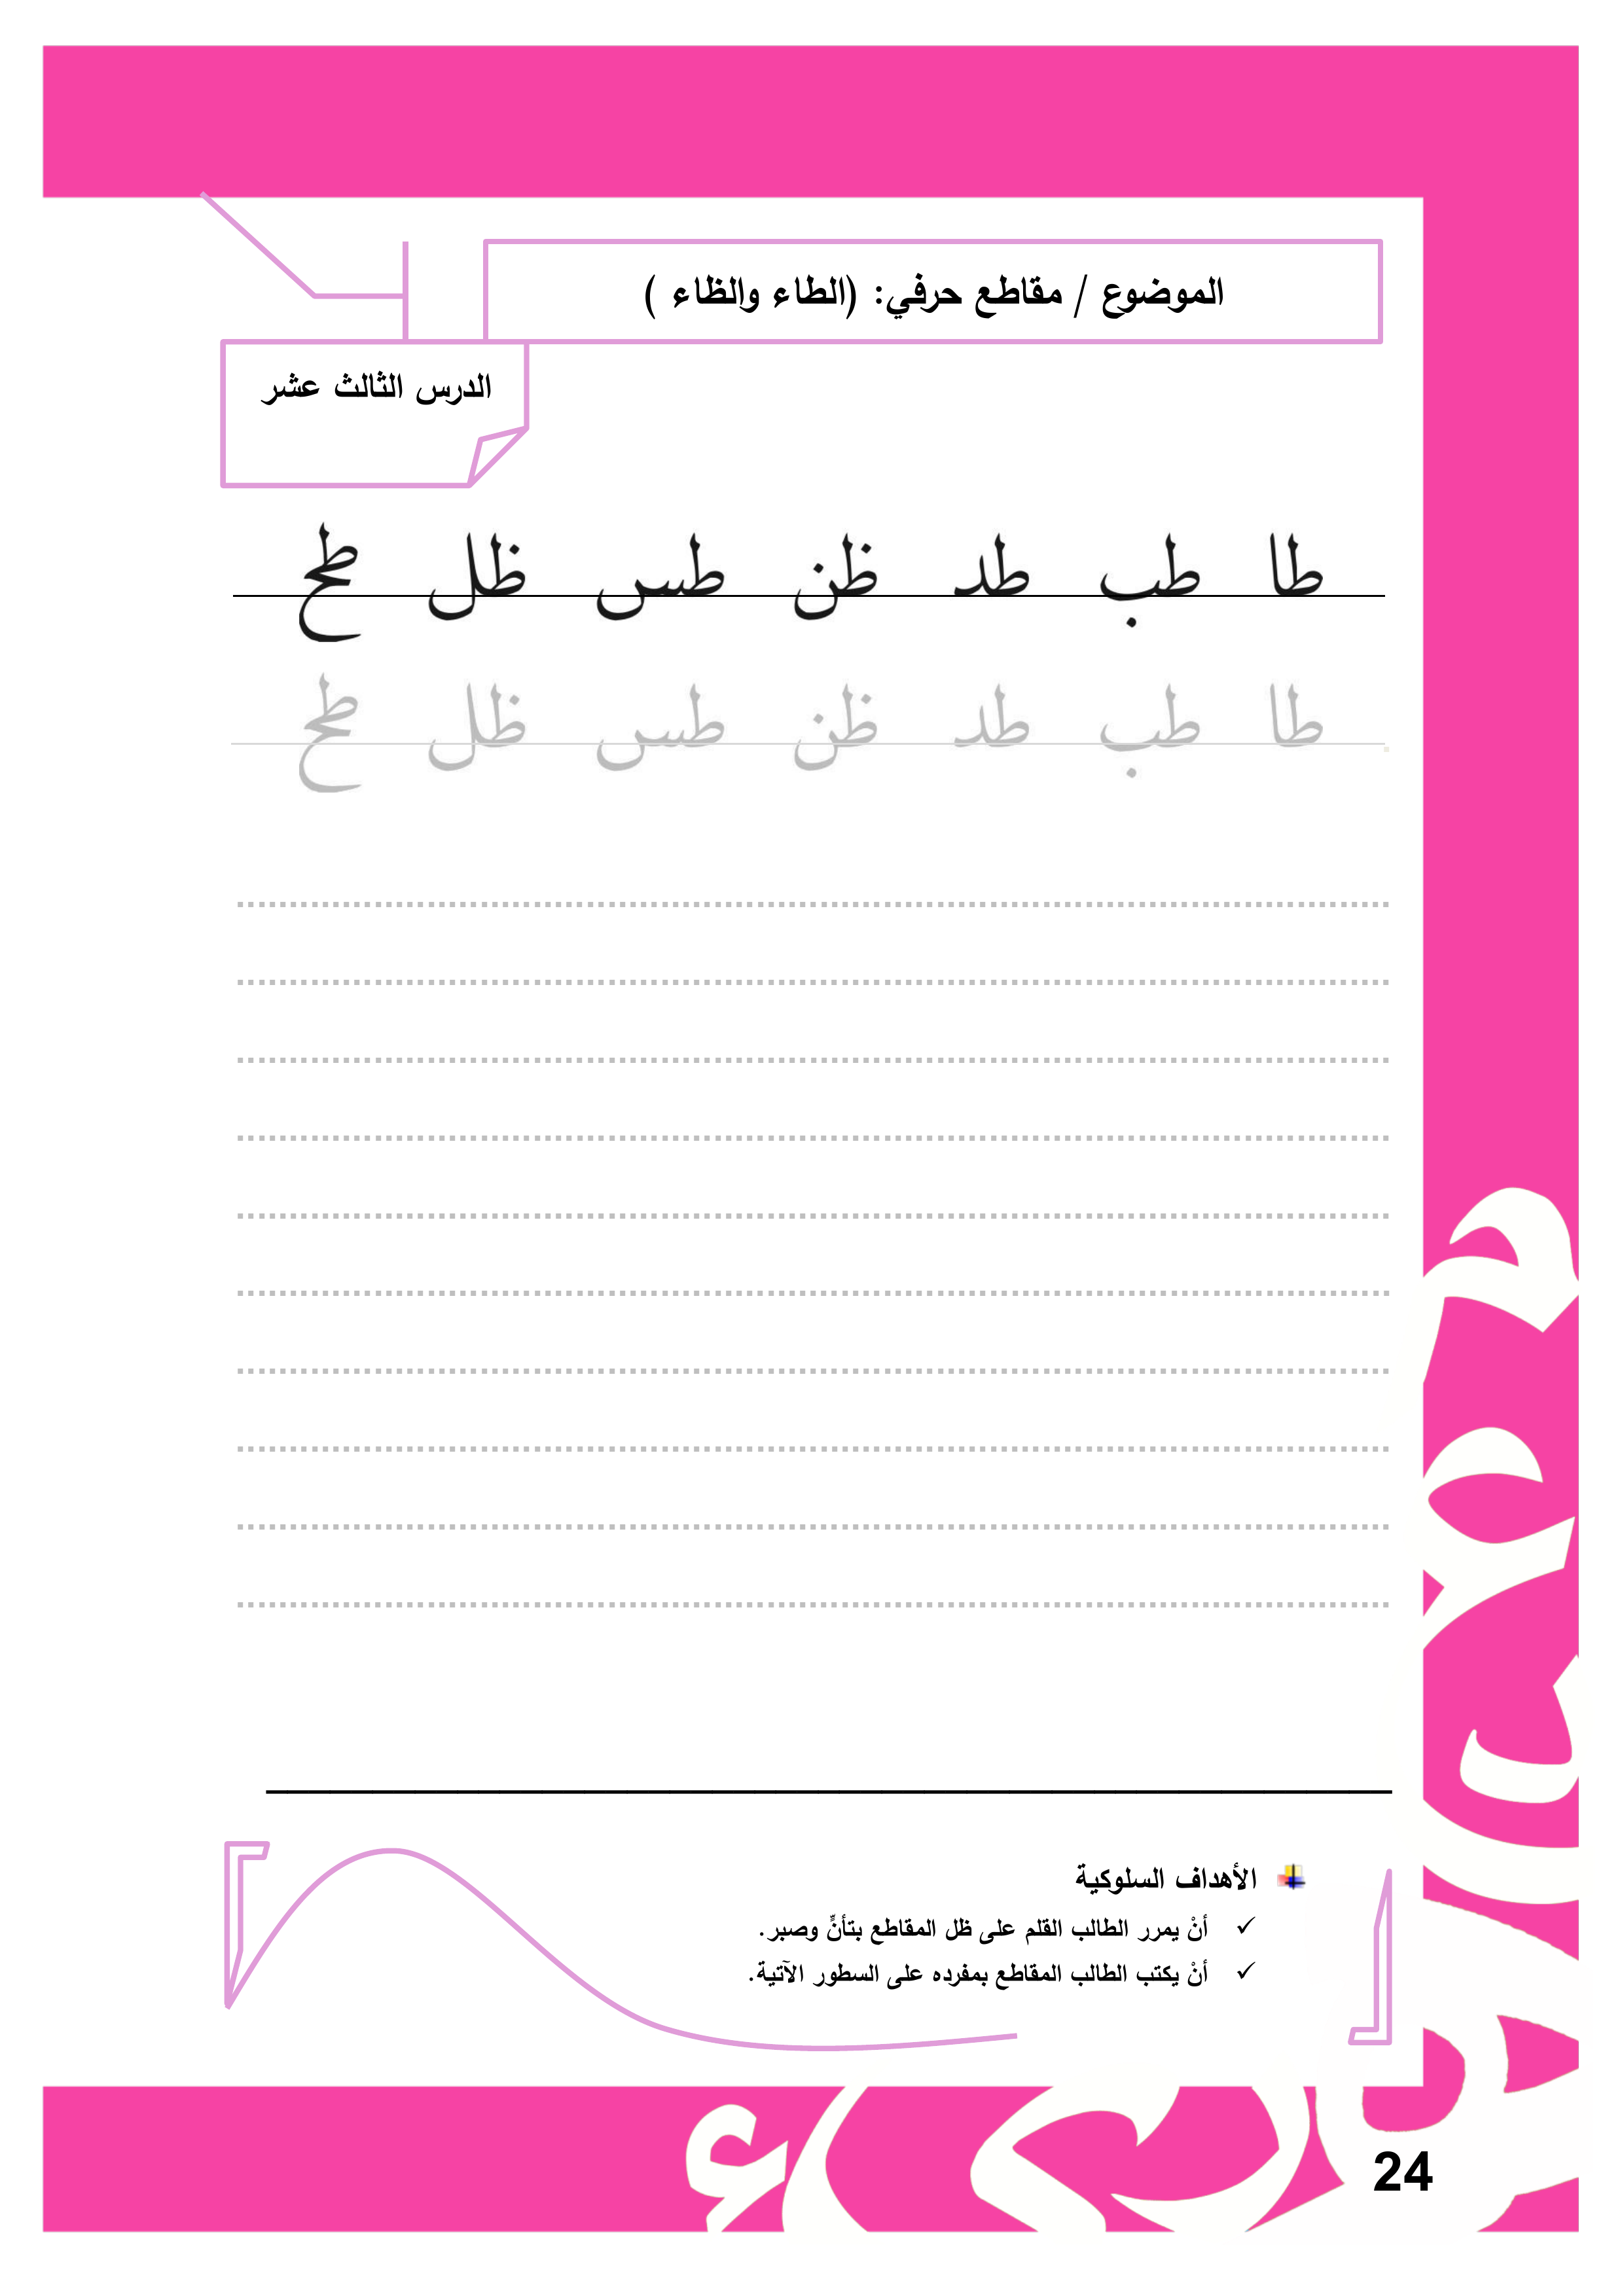 الموضوع / مقاطع حرفي: (الطاء والظاء )
الدرس الثالث عشر
طا طب طد ظن طس ظل طح
طا طب طد ظن طس ظل طح
الأهداف السلوكية
✓ أنْ يمرر الطالب القلم على ظل المقاطع بتأنٍّ وصبر.
✓ أنْ يكتب الطالب المقاطع بمفرده على السطور الآتية.
24